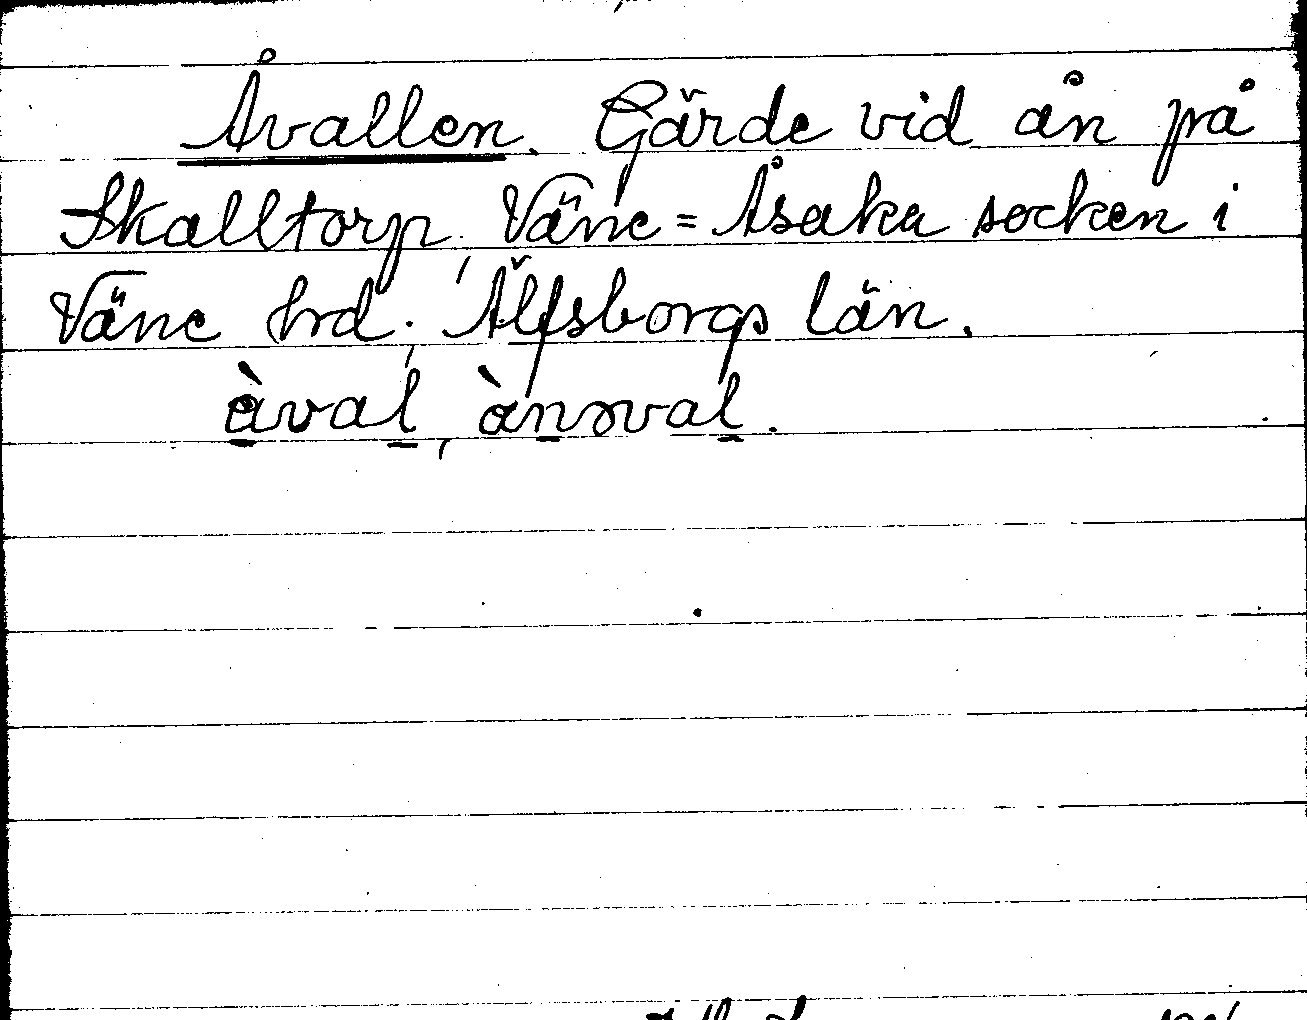 Åvallen. Gärde vid ån på
Skalltorp, Väne=Åsaka socken i
Väne hrd, Älfsborgs län.
àval,